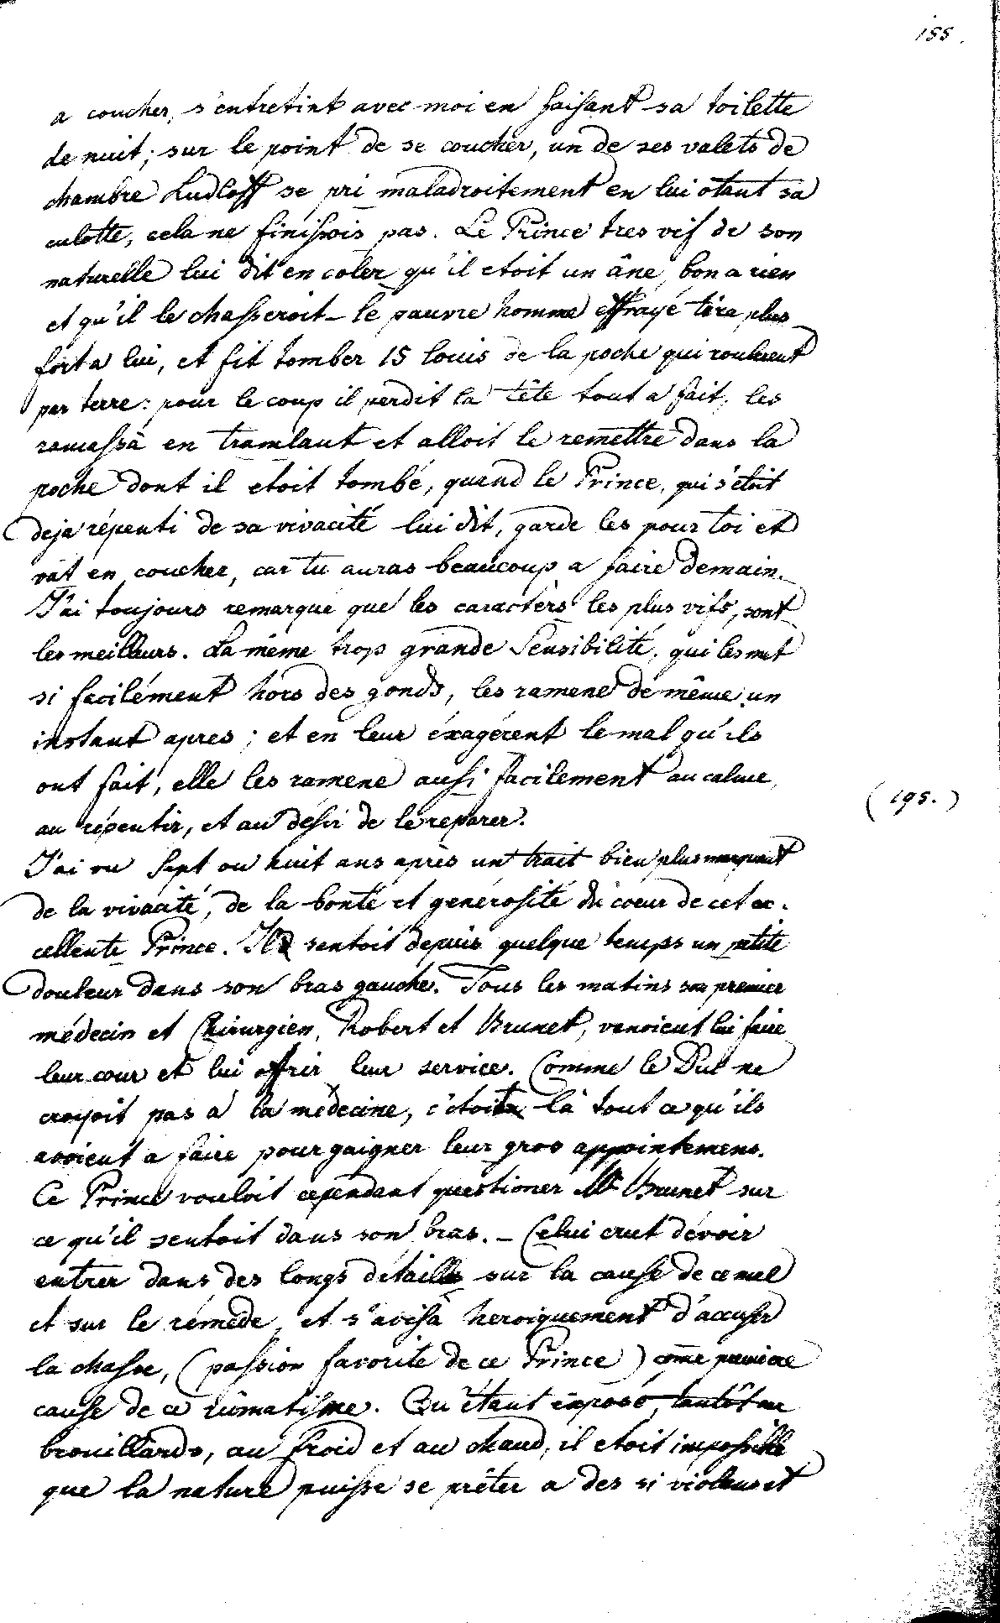 155.
a coucher, s'entretint avec moi en faisant sa toilette
de nuit; sur le point de se coucher, un de ses valets de
chambre Ludloff se pri maladroitement en lui otant sa
culotte, cela ne finissois pas. Le Prince tres vif de son
naturelle lui dit en coler qu'il etoit un âne, bon a rien
et qu'il le chasseroit – le pauvre homme effrayé tira plus
fort a lui, et fit tomber 15 louis de la poche qui roulerent
par terre: pour le coup il perdit la tête tout a fait, les
ramassa en tramlant et alloit le remettre dans la
poche dont il etoit tombé, quand le Prince, qui s'étoit
deja répenti de sa vivacité lui dit, garde les pour toi et
vat en coucher, car tu auras beaucoup a faire demain.
J'ai toujours remarqué que les caractèrs les plus vifs, sont
les meilleurs. La même trop grande Sensibilité, qui les met
si facilément hors des gonds, les ramene de même un
instant apres; et en leur éxagérent le mal qu'ils
ont fait, elle les ramene aussi facilement au calme,
au répentir, et au désir de le reparer.
(195.)
J'ai vu sept ou huit ans après un trait bien plus marquant
de la vivacité, de la bonté et generosité du coeur de cet ex-
cellente Prince. Il sentoit depuis quelque temps un petite
douleur dans son bras gauche. Tous les matins son premier
médecin et Chirurgien, Robert et Brunet, venoient lui faire
leur cour et lui offrir leur service. Comme le Duc ne
croyoit pas a la médecine, c'étoit là tout ce qu'ils
avoient a faire pour gaigner leur gros appointemens.
Ce Prince vouloit cependant questioner Mr Brunet sur
ce qu'il sentoit dans son bras. – Celui crut dévoir
entrer dans des longs détails sur la cause de ce mal
et sur le rémède, et s'avisa heroiquement d'accuser
la chasse, (passion favorite de ce Prince) come premiere
cause de ce rumatisme. Qu'étant exposé, tantôt au
brouillards, au froid et au chaud, il etoit impossible
que la nature puisse se prêter a des si violens et